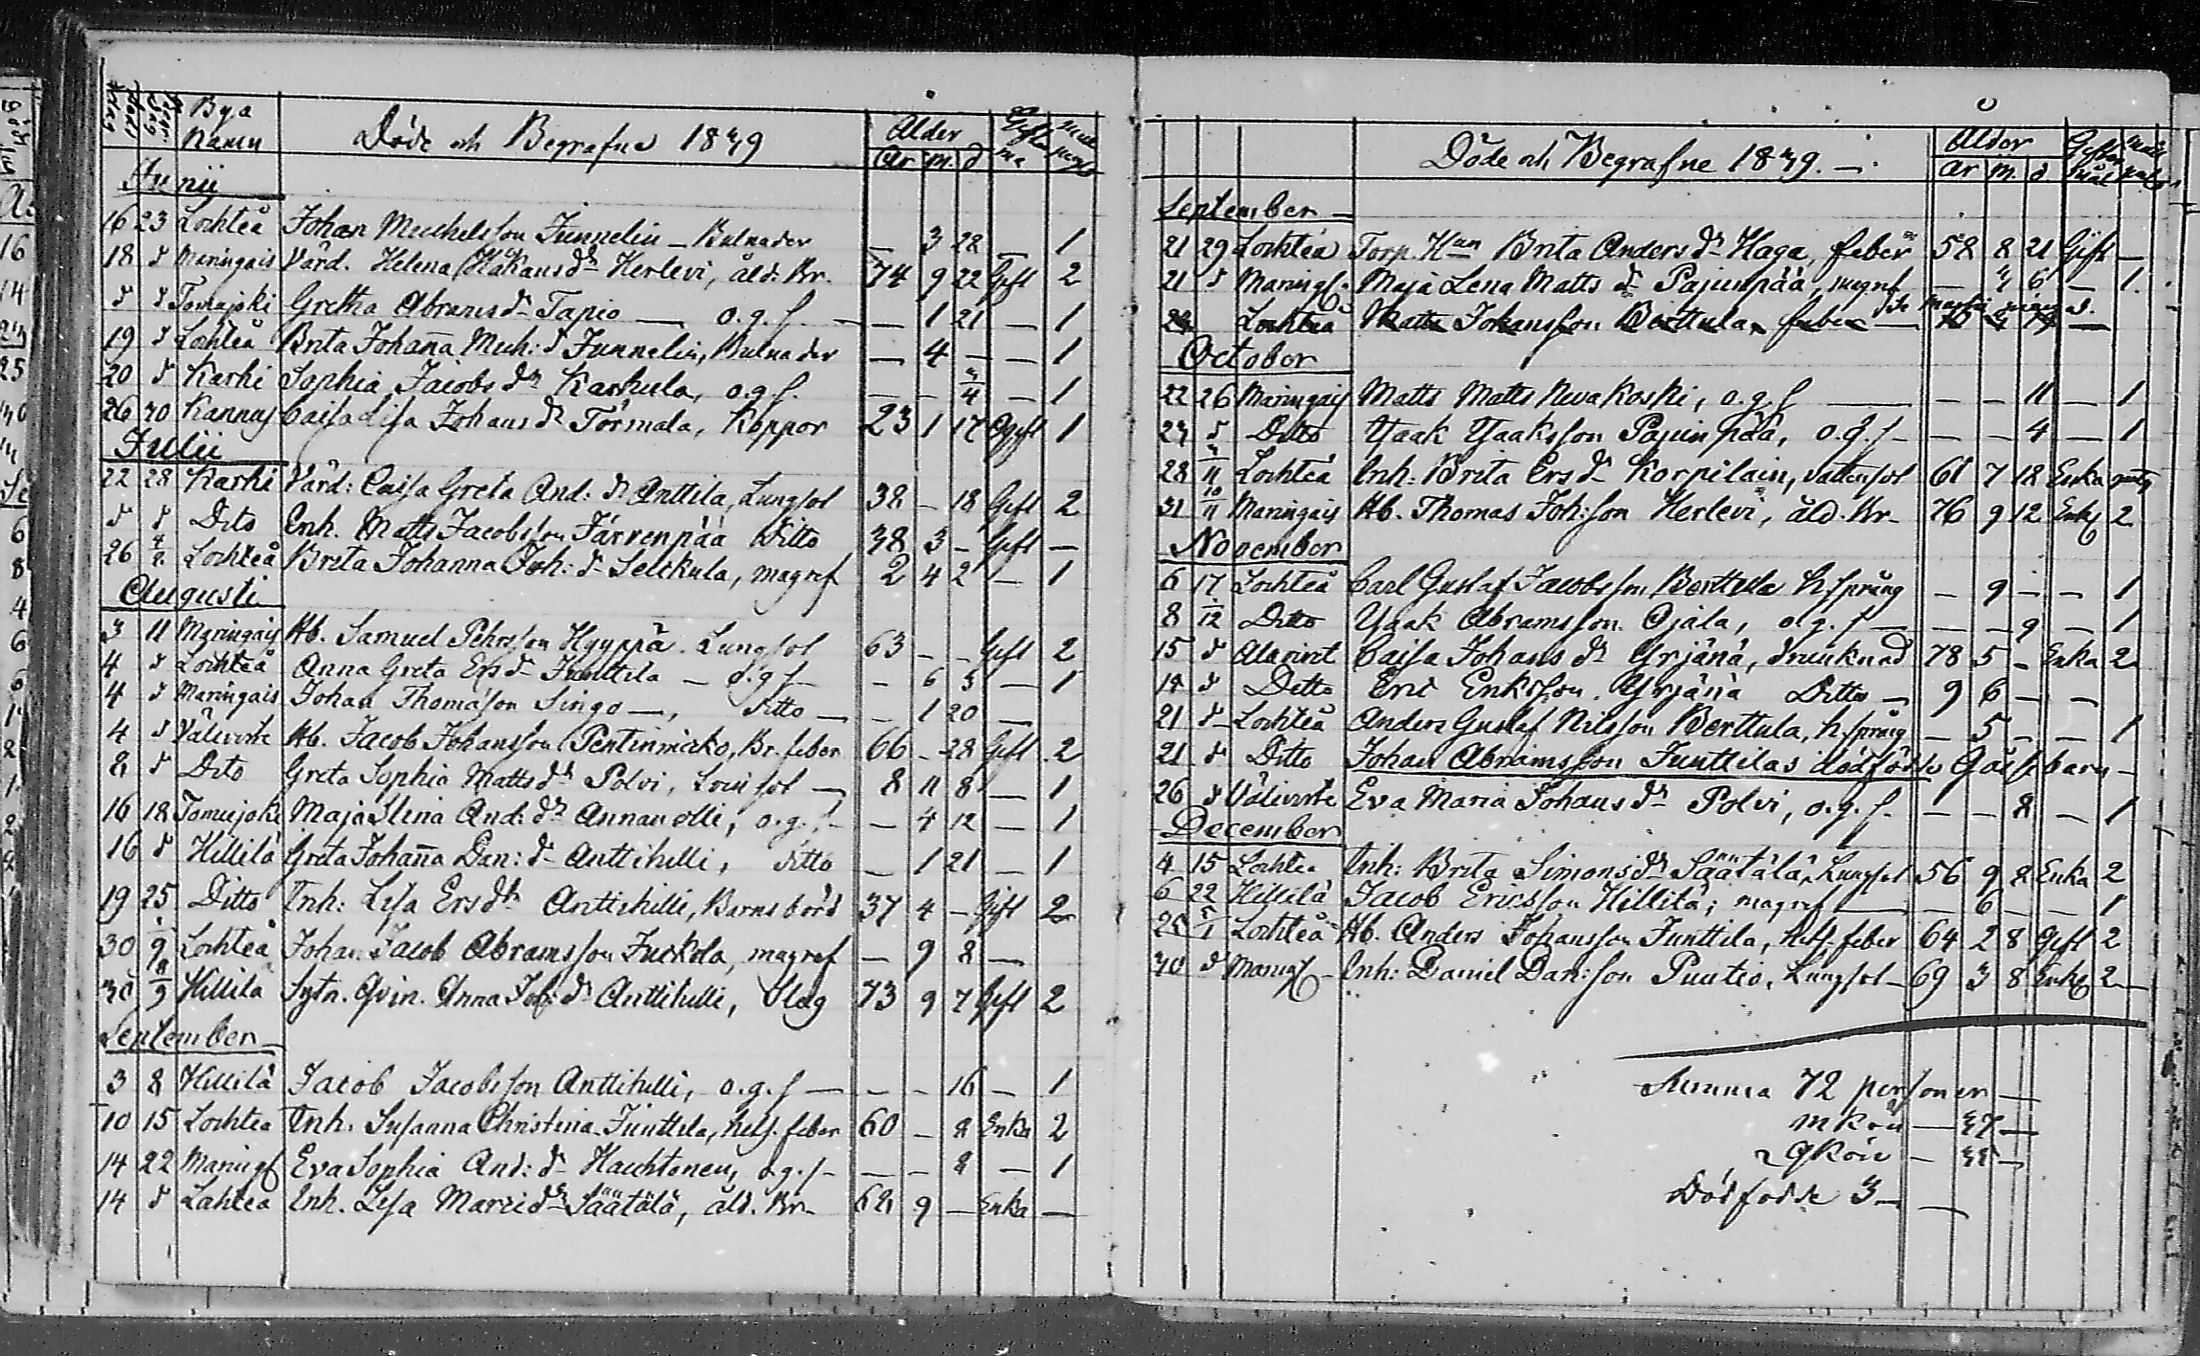 Bya
Namn
Döde och Begrafne 1839
Ålder
År m d
Junij
16 23 Lochteå Johan Michelsson Junnelin - Bulnader — 3 28 — 1
18 d Maringais Värd. Helena Håkansdr Herlevi, åld. Br. 74 9 22 Gift 2
d d Tomujoki Gretha Abramsdr Tapio — o.g.f. — — 1 21 — 1
19 d Lochteå Brita Johanna Mich: d Junnelin, Bulnader — 4 — — 1
20 d Karhi Sophia Jacobs dr Karhula, o.g.f. — — 3/4 — 1
26 30 Kannus Caisa Lisa Johans dr Törmälä, Koppor 23 1 17 Ogift 1
Julii
22 28 Karhi Värd: Caisa Greta And: dr Anttila, Lungsot 38 — 18 Gift 2
d d Dito Inh. Matts Jacobsson Järvenpää Ditto 38 3 — Gift —
26 4/8 Lochteå Brita Johanna Joh: dr Selkkula, magref 2 4 2 — 1
Augusti
3 11 Maringais Hb. Samuel Pehrsson Hyyppä. Lungsot 63 — — Gift 2
4 d Lochteå Anna Greta Ers dr Junttila — o.g.f. — 6 5 — 1
4 d Maringais Johan Thomasson Singo —, Ditto — — 1 20 —
4 d Välivirte Hb. Jacob Johansson Pentinmäki, Br. feber 66 — 28 Gift 2
8 d Dito Greta Sophia Mattsdr Polvi, Lvinsot — 8 11 8 — 1
16 18 Tomujoki Maja Stina And: dr Annanolli, o.g.f. — 4 12 — 1
16 d Hillilä Greta Johanna Dan: dr Anttihilli, Ditto — 1 21 — 1
19 25 Ditto Inh: Lisa Ersdr Anttihilli, Barnsbörd 37 4 — Gift 2
30 9 Lochteå Johan Jacob Abramsson Juckola, magref — 9 8 —
30 Hillilä Sytn. Qvin. Anna Joh: dr Anttihilli, Slag 73 9 7 Gift 2
September
3 8 Hillilä Jacob Jacobsson Anttihilli, o.g.f. — — — 16 — 1
10 15 Lochteå Inh. Susanna Christina Junttila, hets. feber 60 — 8 Enka 2
14 22 Marings Eva Sophia And: dr Hauchtonen, o.g.f. — — 8 — 1
14 d Lahteå Inh. Lisa Marcidr Säätälä, åld. Br. 62 9 — Enka —
Döde och Begrafne 1839. —
Ålder
År m d.
September
21 29 Lochteå Torp. Hun Brita Anders dr Haga, feber 58 8 21 Gift —
21 d Marings. Maja Lena Matts dr Pajunpää, magref — 3 6 — 1.
Lochteå Matts Johansson Berttula, feber —
October
22 26 Maringais Matts Matts Nivakoski, o.g.f. — — — 11 — 1
23 d Ditto Isaak Isaaksson Pajunpää, o.g.f. — — — 4 — 1
28 3/11 Lochteå Inh: Brita Ers dr Korpilain, vattensot 61 7 18 Enka
31 10/11 Maringais Hb. Thomas Joh:son Herlevi, åld. Br. 76 9 12 Enkl 2
November
6 17 Lochteå Carl Gustaf Jacobsson Berttula h.språng — 9 — — 1
8 1/12 Ditto Isaak Abramsson Ojala, o.g.f. — — — 9 — 1
15 d Alavirt Caisa Johans dr Yrjänä, drunknad 78 5 — Enka 2
14 d Ditto Eric Ericksson Yrjänä Ditto — 9 6 — —
21 d Lochteå Anders Gustaf Nilsson Berttula, h.språng — 5 — — 1
21 d Ditto Johan Abramsson Junttilas dödfödde Gåssbarn —
26 d Välivirte Eva Maria Johans dr Polvi, o.g.f. — — 8 — 1
December
4 15 Lochteå Inh: Brita Simonsdr Säätälä, Lungsot 56 9 8 Enka 2
6 22 Hillilä Jacob Ericsson Hillilä, magref — — 6 — — 1
28 5/1 Lochteå Hb. Anders Johansson Junttila, hets. feber 64 2 8 Gift 2
30 d Marings — Inh: Daniel Dan:son Puutio, Lungsot — 69 3 8 Enkl 2 —
Summa 72 personer —
m kön — 37 —
q kön — 35 —
Dödfödde 3 —